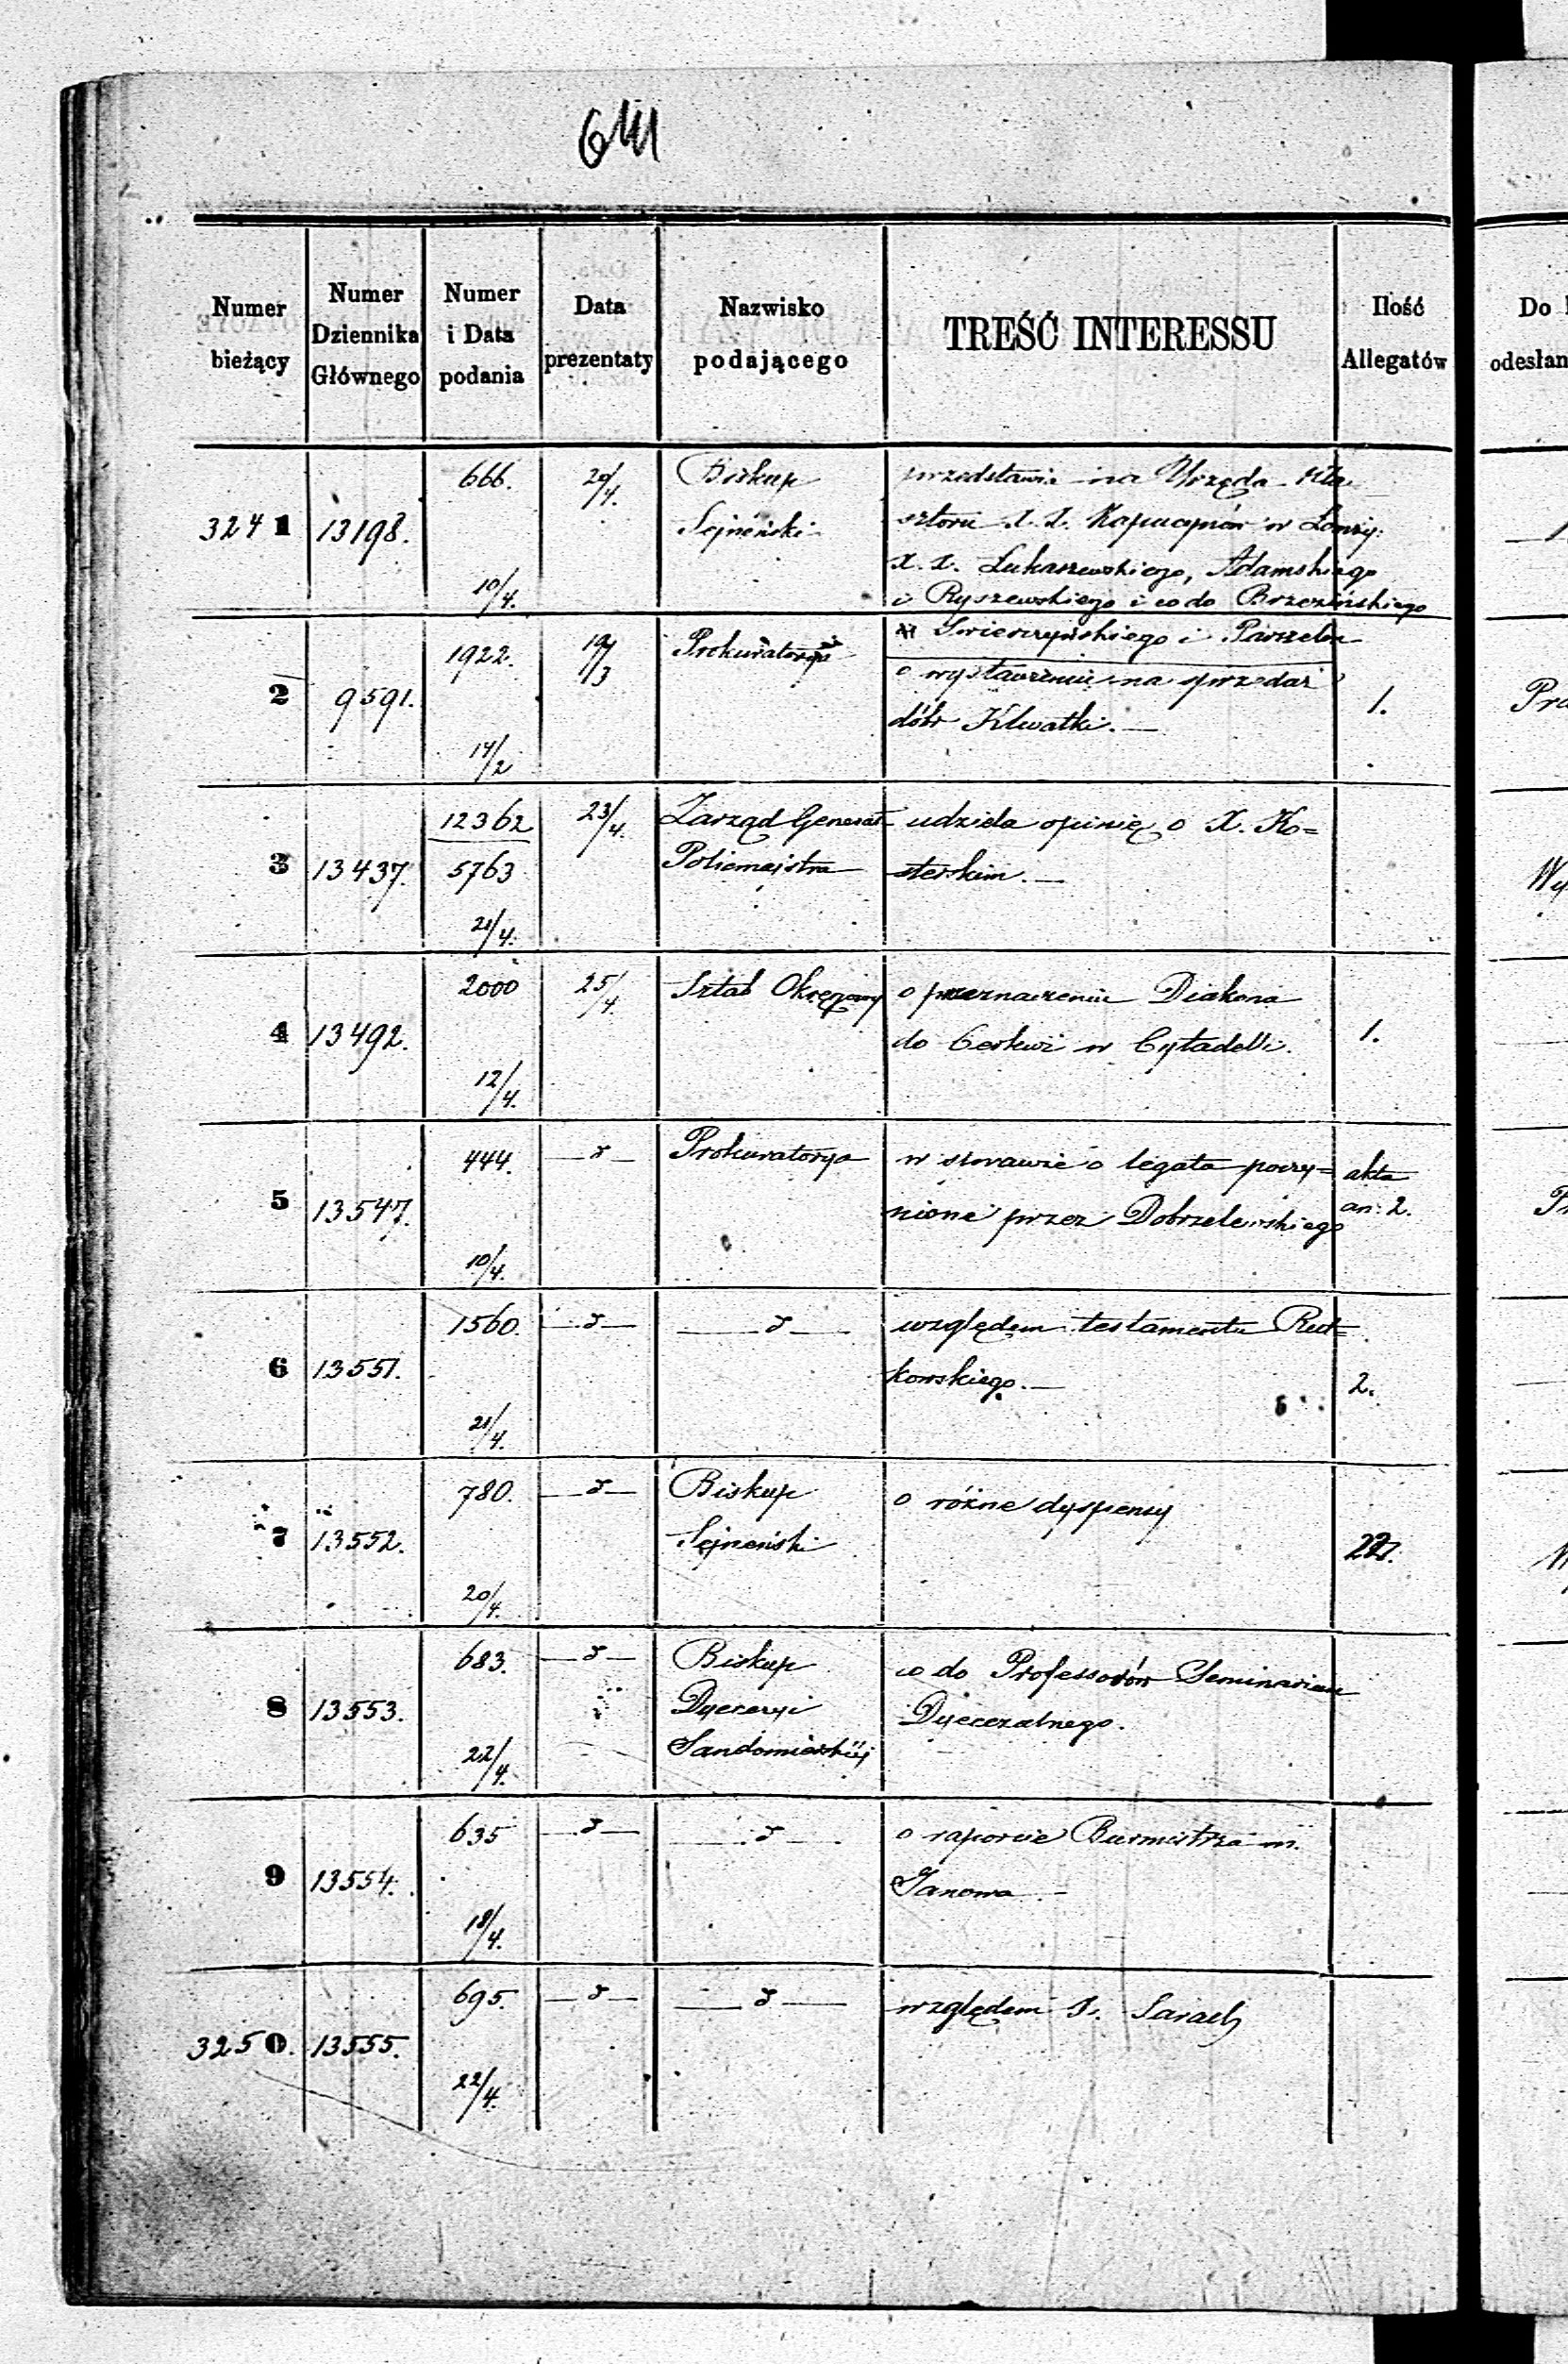 Numer bieżący
Numer Dziennika Głównego
Numer i Data podania
Data prezentaty
Nazwisko podającego
TREŚĆ INTERESSU
Ilość Allegatów
Do
odesłan
3241 13198. 666. 10/4. 20/4. Biskup Sejneński
przedstawia na Urzęda Kla
sztoru X.X. Kapucynów w Łomży
X.X. Łukaszewskiego, Adamskiego
i Ryszewskiego i co do Brzezińskiego
Swierczyńskiego i
2 9591. 1922. 14/2 19/3 Prokuratorya
o wystawienie na sprzedaż
dóbr Klwatki.—
1.
3 13437. 12362 5763 21/4. 23/4. Zarząd Generał Policmajstra
udziela opinię o X. Ko=
sterskim.—
4 13492. 2000 12/4. 25/4. Sztab Okręgowy
o przeznaczenie Diakona
do Cerkwi w Cytadelli.
1.
5 13547. 444. 10/4. Prokuratorya
w sprawie o legata poczy=
nione przez Dobrzelewskiego
akta
an: 2.
6 13551. 1560. 21/4.
względem testamentu Rut=
kowskiego.—
2.
7 13552. 780. 20/4. Biskup Sejneński
o różne dyspensy
8 13553. 683. 22/4. Biskup Dyecezyi Sandomierskiej
co do Professorów Seminarium
Dyecezalnego.
9 13554. 635 18/4.
o raporcie Burmistrza m.
Janowa.—
3250. 13555. 695. 22/4.
względem